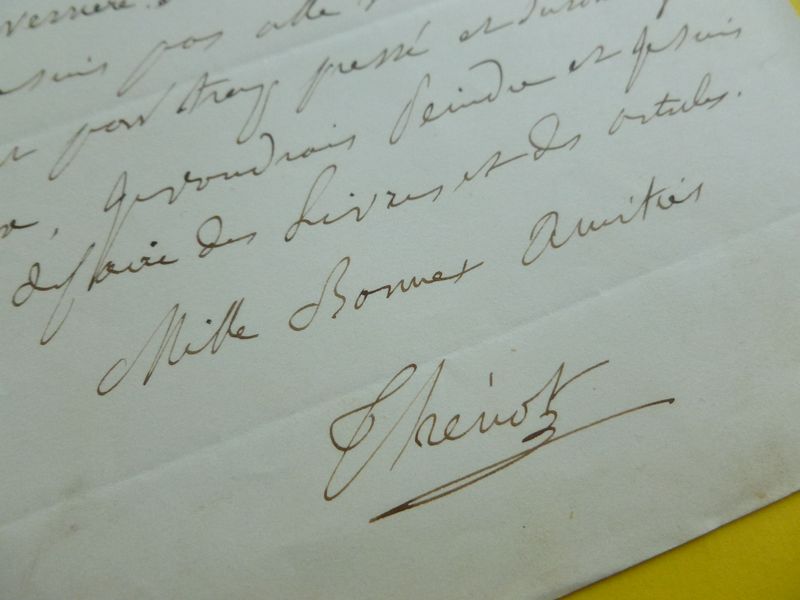 suis pas allé
pour trop pressé et
, je voudrais Peindre et je suis
faire des Livres et des articles.
Mille Bonnes Amitiés
Thénot